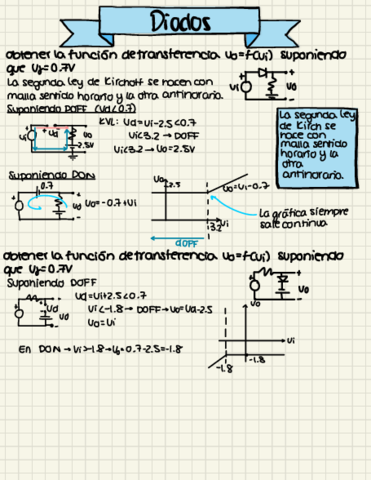 Diodos
obtener la función de transferencia Uo=f(Ui) suponiendo
que Uγ=0.7V
La segunda ley de Kirchoff se nacen con
malla sentido horario y la otra antinoraria.
Ui
Uo
Suponiendo DOFF (Vd<0.7)
KVL: Ud=Ui-2.5<0.7
Ui<3.2→DOFF
Ui<3.2→Uo=2.5V
Ui
+ Ud -
Uo
2.5V
La segunda ley
de Kirch se
nace con
malla sentido
horario y la
otra
antinoraria.
Suponiendo DON
0.7
Uo
Uo=-0.7+Ui
Uo
2.5
Uo=Ui-0.7
3.2
Ui
DOFF
La gráfica siempre
sale continua
obtener la función de transferencia Uo=f(Ui) suponiendo
que Uγ=0.7V
Suponiendo DOFF
Ud=Ui+2.5<0.7
Ui<-1.8→DOFF→Uo=Ud-2.5
Uo=Ui
Ud
Uo
Uo
Uo
Ui
-1.8
-1.8
En DON→Ui>-1.8→Uo=0.7-2.5=-1.8